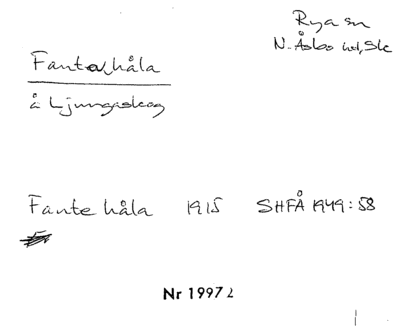 Rya sn
N. Åsbo hd, Sk
Fantahåla
å Ljungaskog
Fante håla 1915 SHFÅ 1949:58
Nr 19972